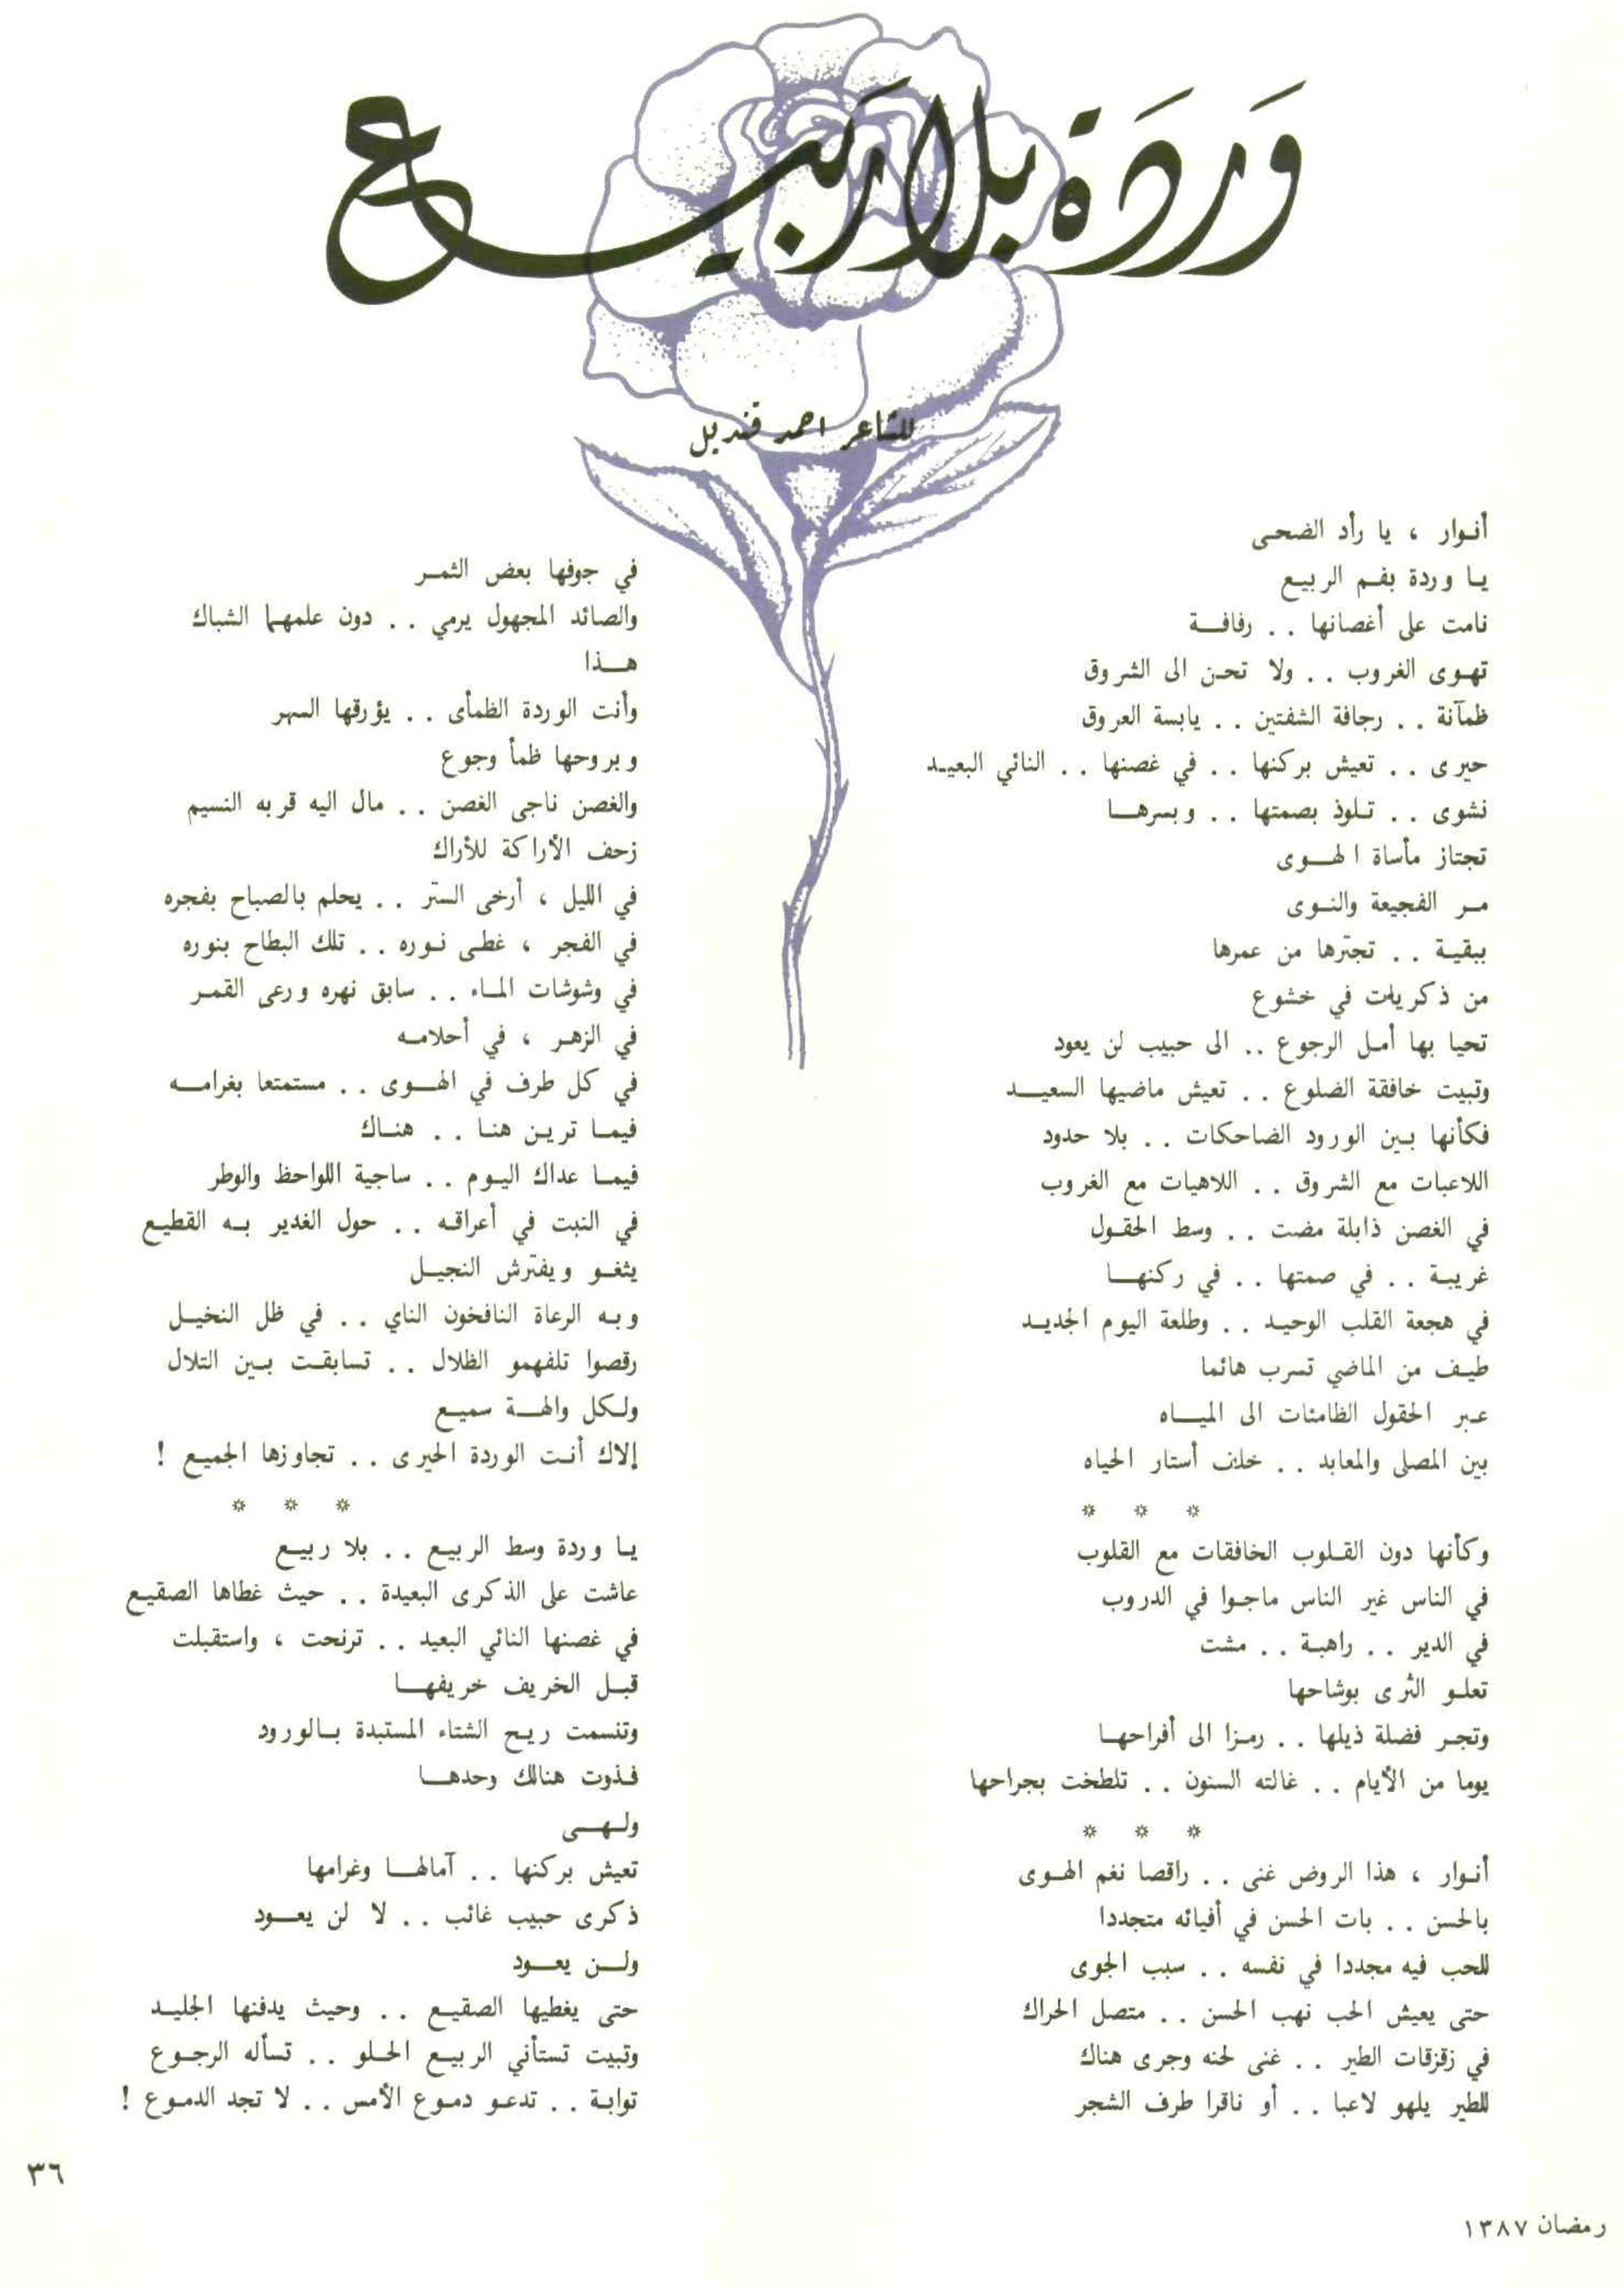 وردة بلا ربيع
للشاعر احمد قنديل
أنوار ، يا رأد الضحى
يا وردة بفم الربيع
نامت على أغصانها . . رفافة
تهوى الغروب . . ولا تحن الى الشروق
ظمآنة . . رجافة الشفتين . . يابسة العروق
حيرى . . تعيش بركنها . . في غصنها . . النائي البعيد
نشوى . . تلوذ بصمتها . . وبسرها
تجتاز مأساة الهوى
مر الفجيعة والنوى
ببقية . . تجترها من عمرها
من ذكريات في خشوع
تحيا بها أمل الرجوع .. الى حبيب لن يعود
وتبيت خافقة الضلوع . . تعيش ماضيها السعيد
فكأنها بين الورود الضاحكات . . بلا حدود
اللاعبات مع الشروق . . اللاهيات مع الغروب
في الغصن ذابلة مضت . . وسط الحقول
غريبة . . في صمتها . . في ركنها
في هجعة القلب الوحيد . . وطلعة اليوم الجديد
طيف من الماضي تسرب هائما
عبر الحقول الظامئات الى المياه
بين المصلى والمعابد . . خلف أستار الحياه
* * *
وكأنها دون القلوب الخافقات مع القلوب
في الناس غير الناس ماجوا في الدروب
في الدير . . راهبة . . مشت
تعلو الثرى بوشاحها
وتجر فضلة ذيلها . . رمزا الى أفراحها
يوما من الأيام . . غالته السنون . . تلطخت بجراحها
* * *
أنوار ، هذا الروض غنى . . راقصا نغم الهوى
بالحسن . . بات الحسن في أفيائه متجددا
للحب فيه مجددا في نفسه . . سبب الجوى
حتى يعيش الحب نهب الحسن . . متصل الحراك
في زقزقات الطير . . غنى لحنه وجرى هناك
للطير يلهو لاعبا . . أو ناقرا طرف الشجر
في جوفها بعض الثمر
والصائد المجهول يرمي . . دون علمهما الشباك
هذا
وأنت الوردة الظمأى . . يؤرقها السهر
وبروحها ظمأ وجوع
والغصن ناجى الغصن . . مال اليه قربه النسيم
زحف الأراكة للأراك
في الليل ، أرخى الستر . . يحلم بالصباح بفجره
في الفجر ، غطى نوره . . تلك البطاح بنوره
في وشوشات الماء . . سابق نهره ورعى القمر
في الزهر ، في أحلامه
في كل طرف في الهوى . . مستمتعا بغرامه
فيما ترين هنا . . هناك
فيما عداك اليوم . . ساجية اللواحظ والوطر
في النبت في أعراقه . . حول الغدير به القطيع
يثغو ويفترش النجيل
وبه الرعاة النافخون الناي . . في ظل النخيل
رقصوا تلفهمو الظلال . . تسابقت بين التلال
ولكل والهة سميع
إلاك أنت الوردة الحيرى . . تجاوزها الجميع !
* * *
يا وردة وسط الربيع . . بلا ربيع
عاشت على الذكرى البعيدة . . حيث غطاها الصقيع
في غصنها النائي البعيد . . ترنحت ، واستقبلت
قبل الخريف خريفها
وتنسمت ريح الشتاء المستبدة بالورود
فذوت هنالك وحدها
ولهى
تعيش بركنها . . آمالها وغرامها
ذكرى حبيب غائب . . لا لن يعود
ولن يعود
حتى يغطيها الصقيع . . وحيث يدفنها الجليد
وتبيت تستأني الربيع الحلو . . تسأله الرجوع
توابة . . تدعو دموع الأمس . . لا تجد الدموع !
٣٦
رمضان ١٣٨٧